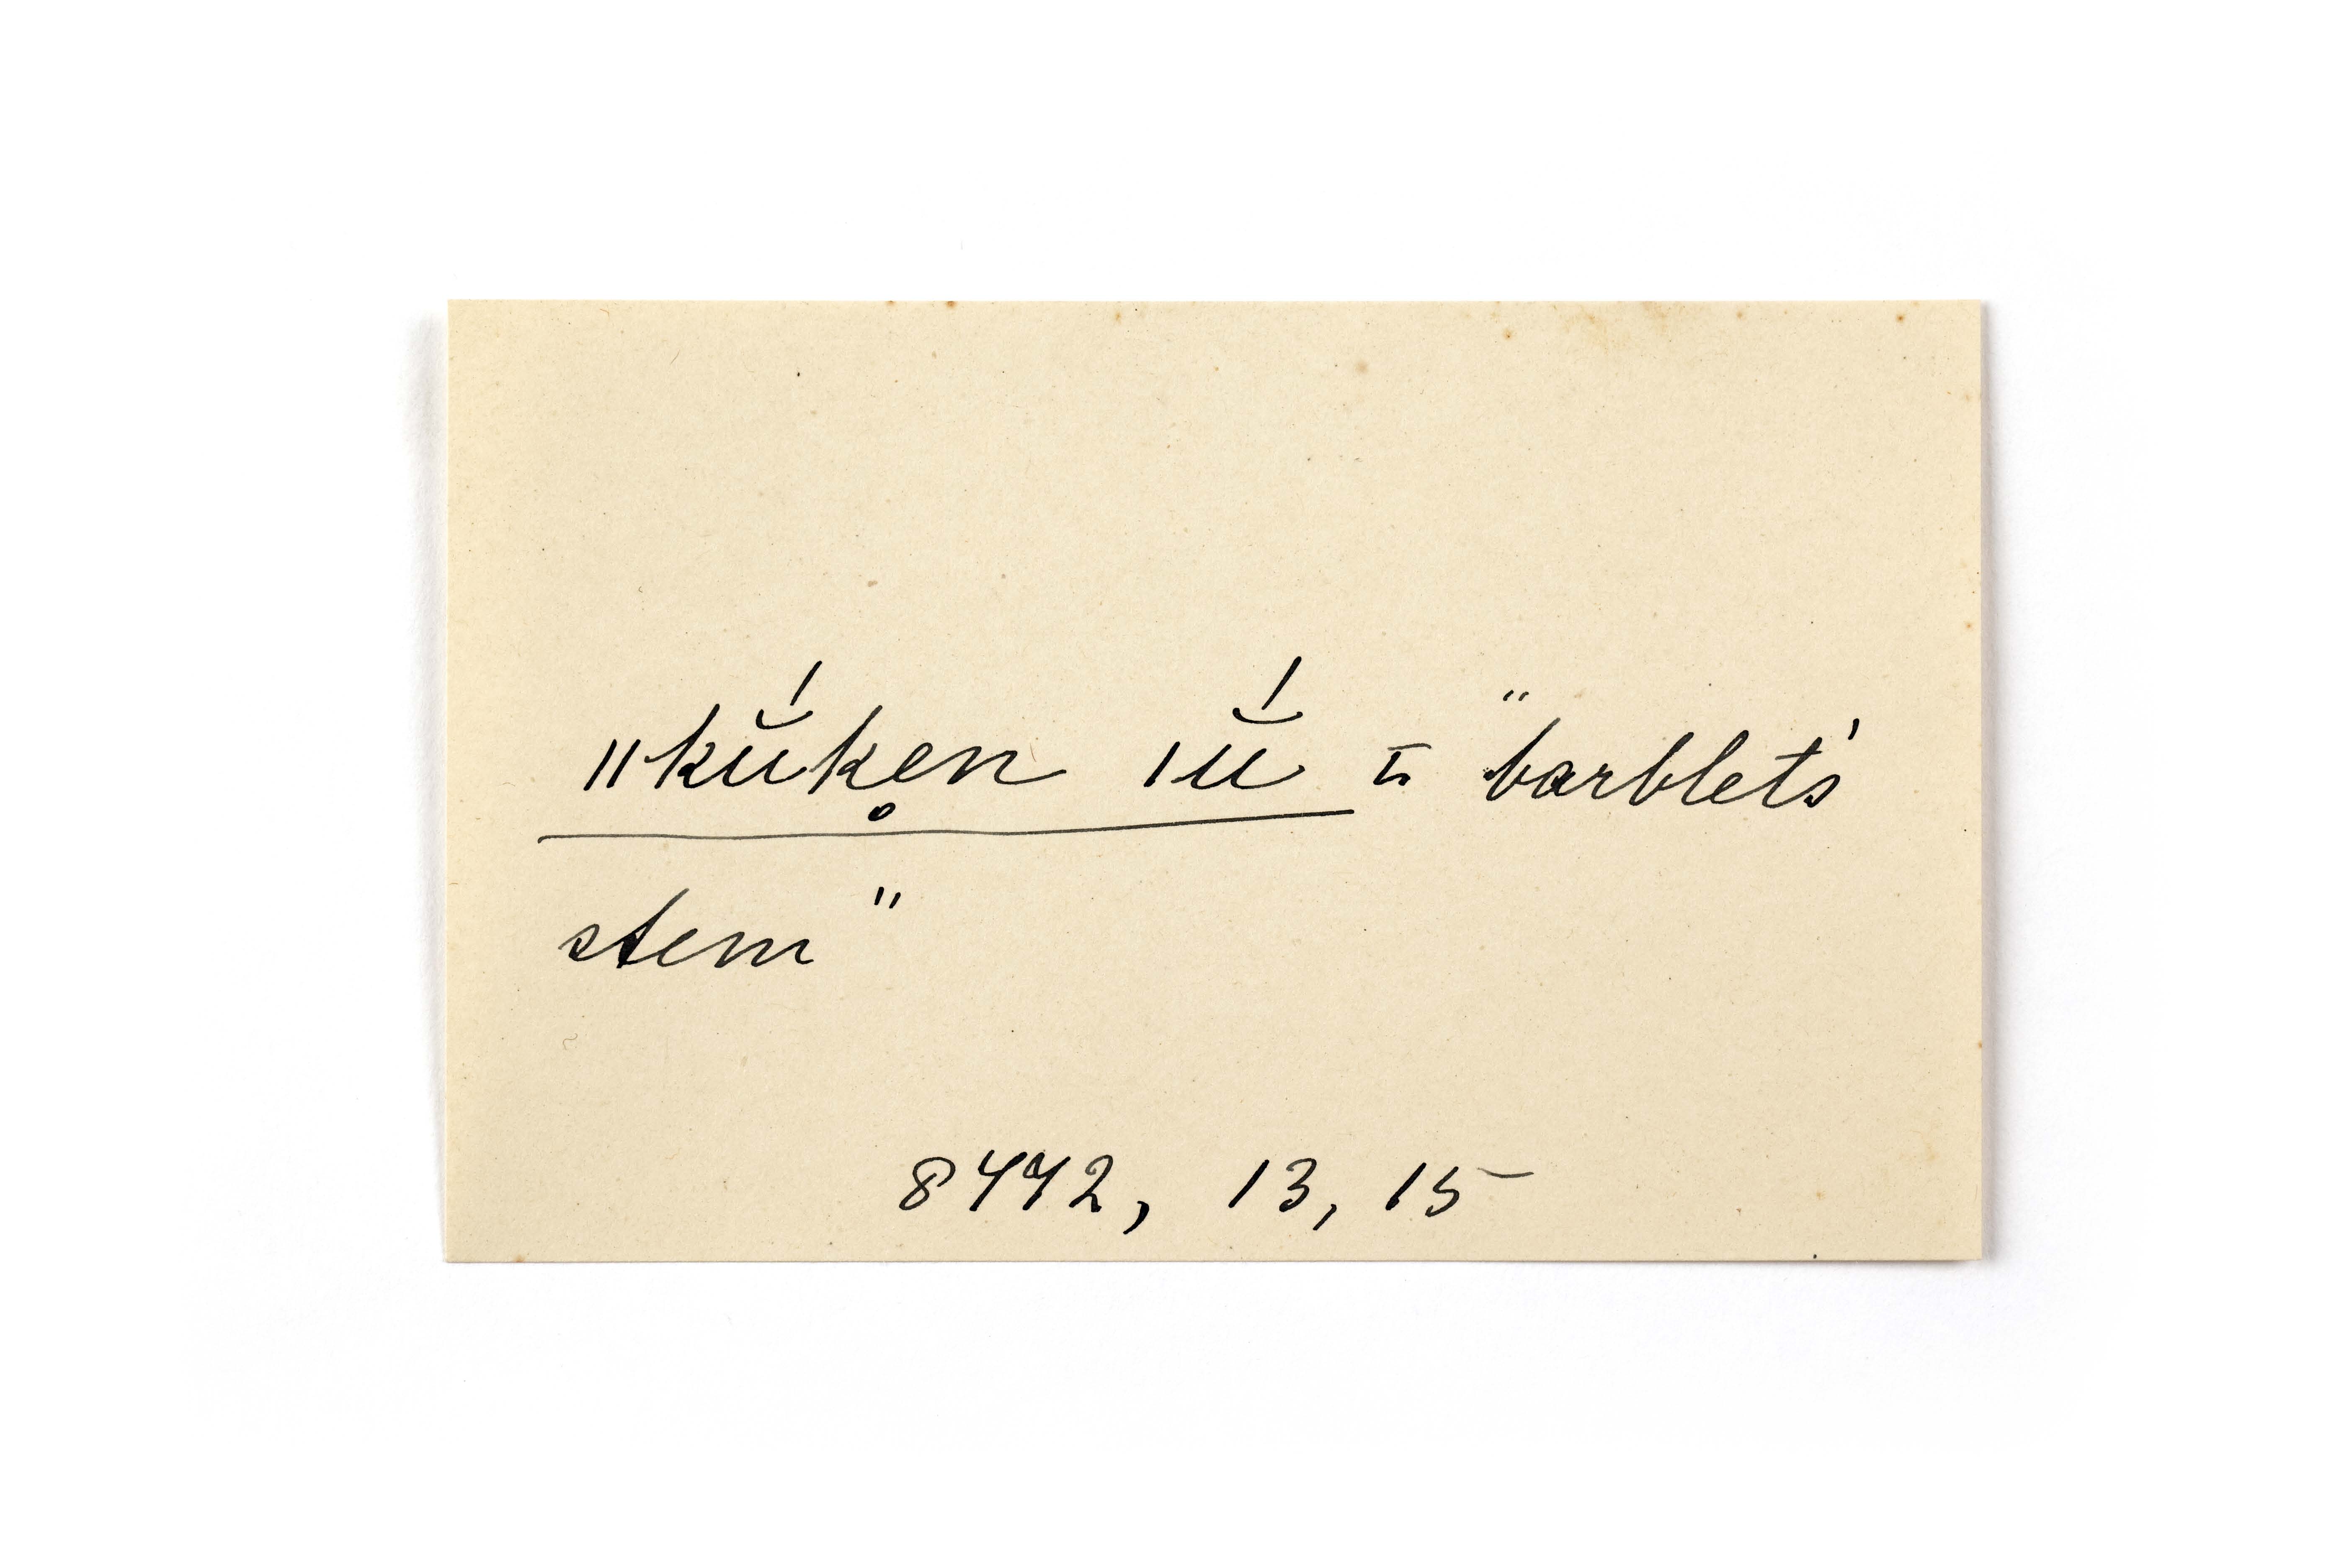 ǁkŭ́k̥en ǀŭ́ = "barblet's
stem"
8472, 13, 15